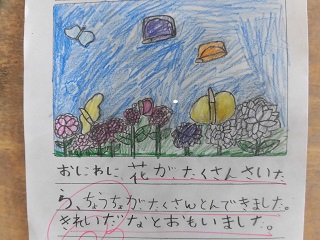 おにわに 花が たくさん さいた
ら、ちょうちょがたくさんとんできました。
きれいだなとおもいました。